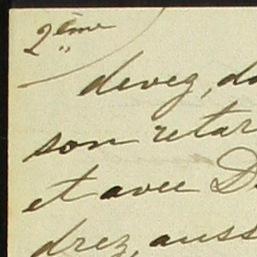 2ème
devez, da
son retar
et avec D
drez, auss